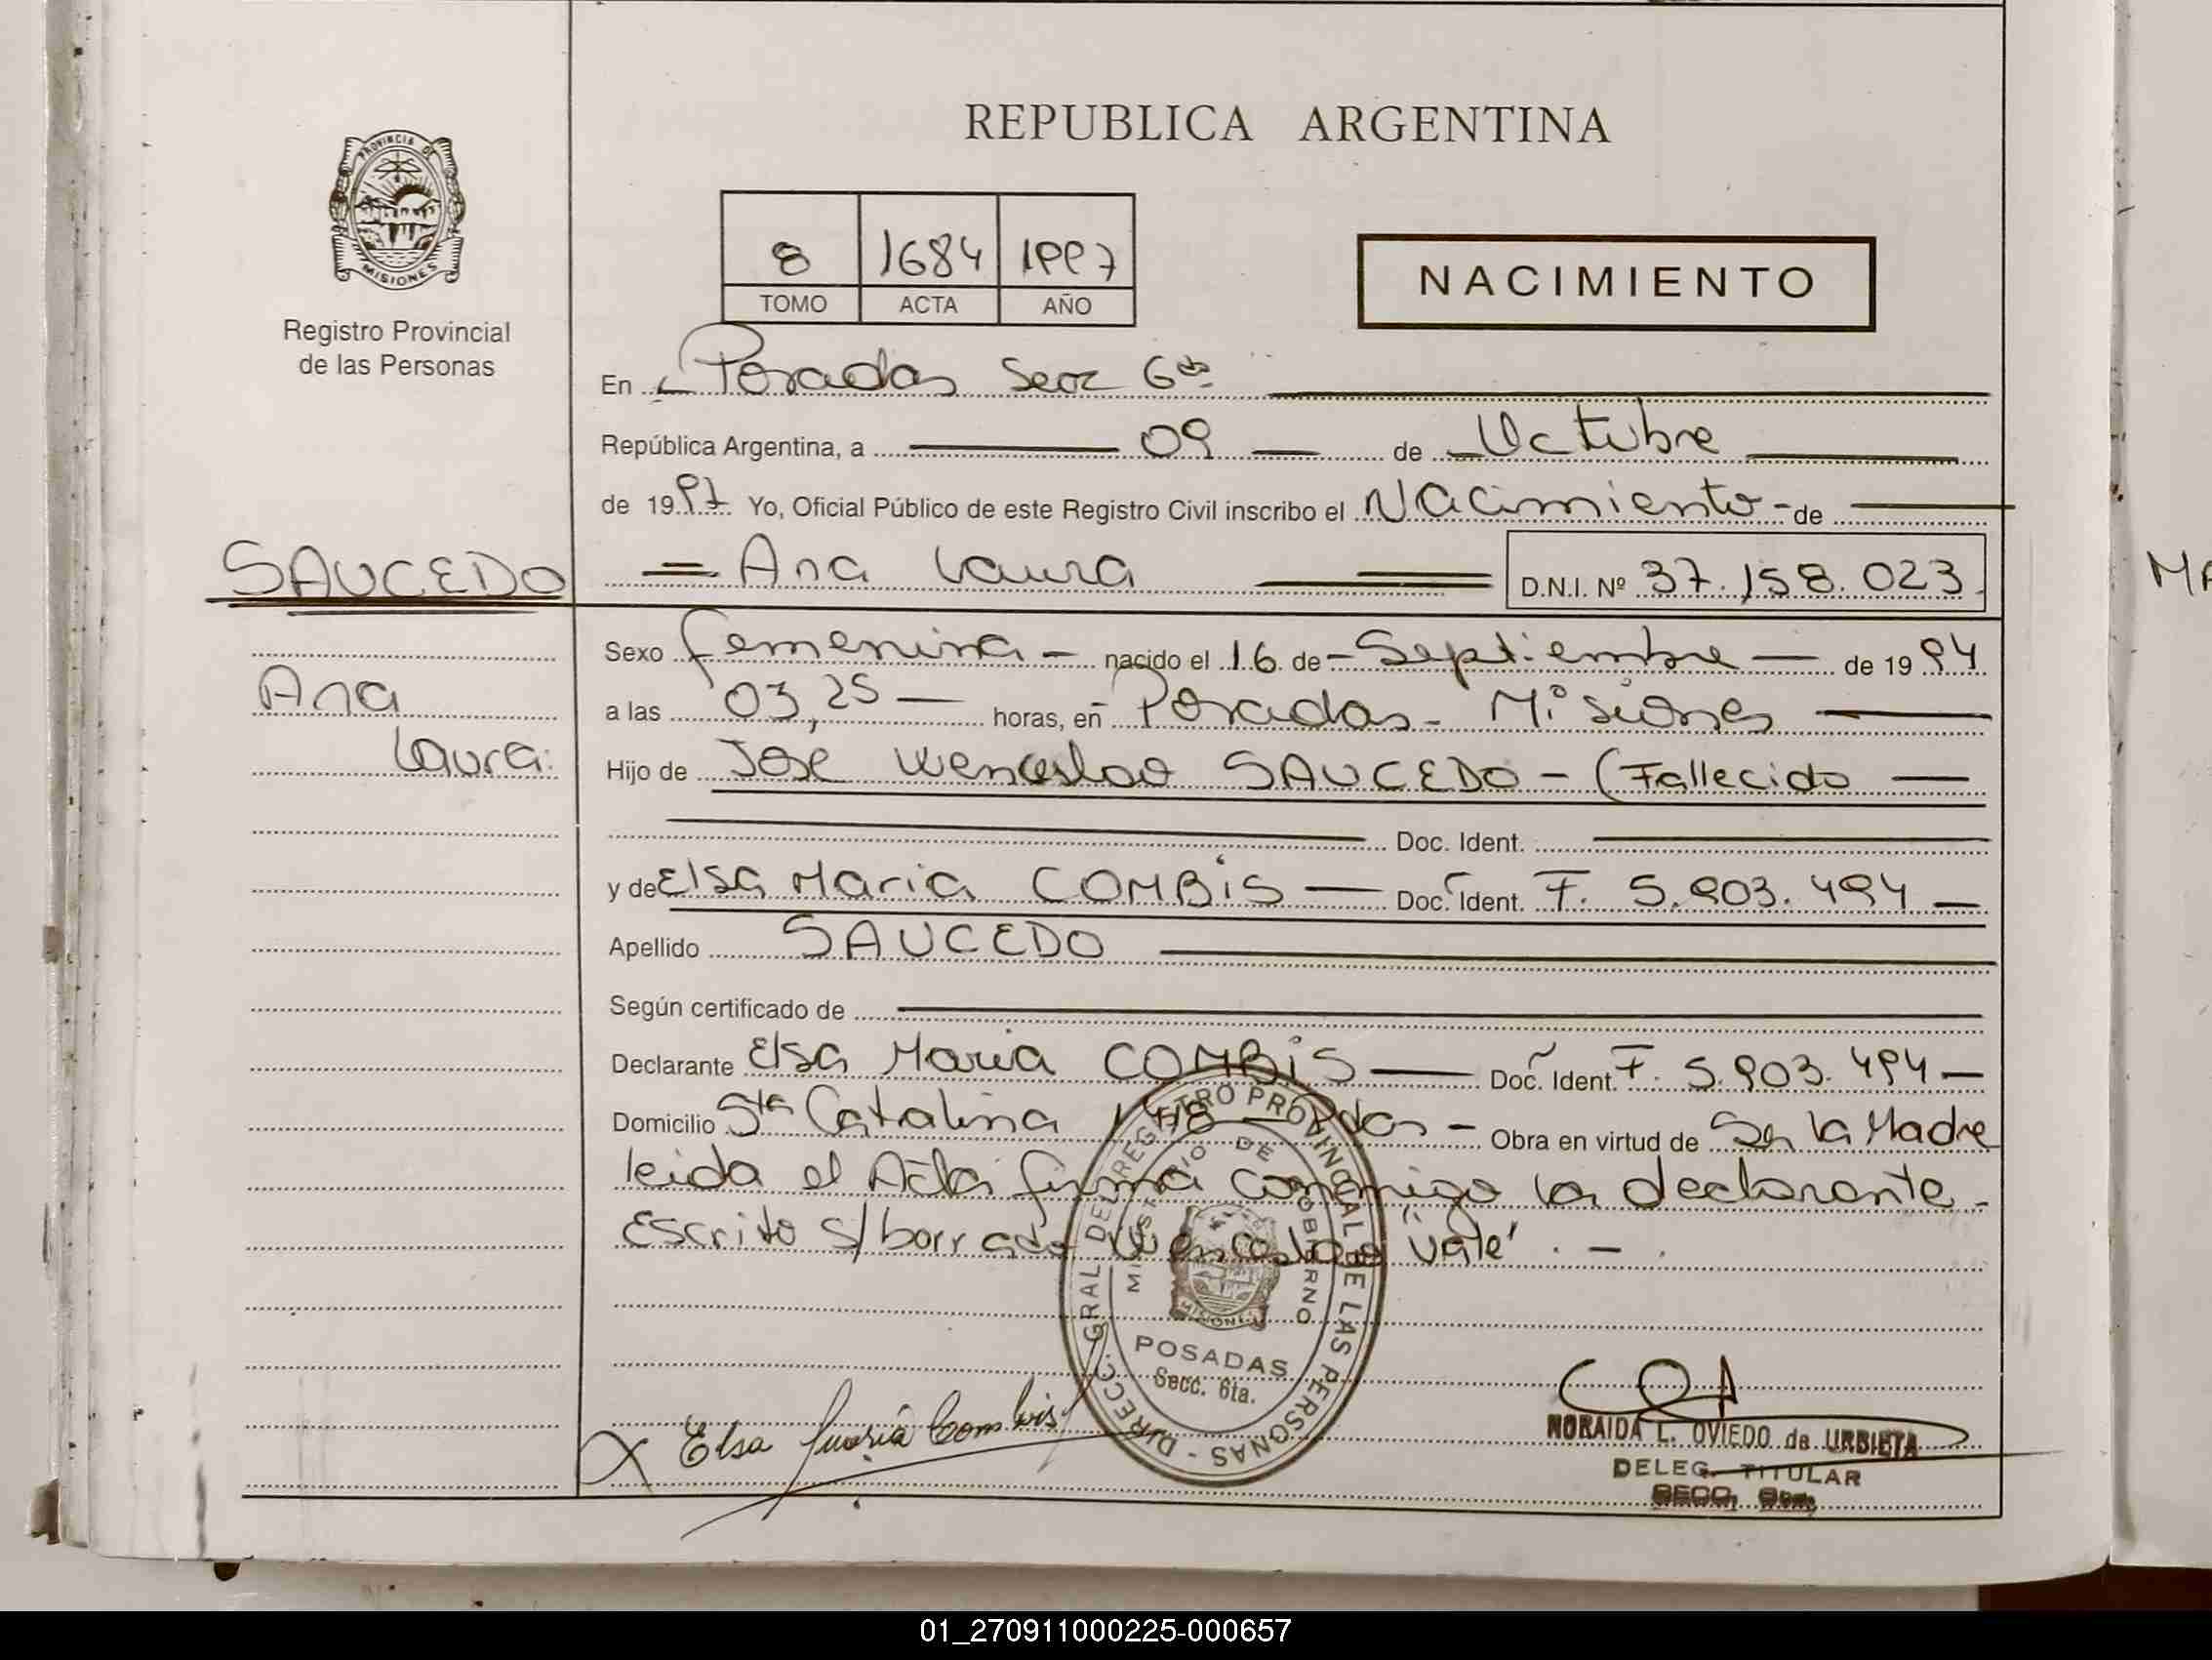 REPUBLICA ARGENTINA
PROVINCIA DE
MISIONES
Registro Provincial
de las Personas
8 1684 1997
TOMO ACTA AÑO
NACIMIENTO
En Posadas Secc 6ta
República Argentina, a 09 de Octubre
de 1997 Yo, Oficial Público de este Registro Civil inscribo el Nacimiento - de
SAUCEDO
Ana Laura D.N.I. Nº 37.158.023
Sexo femenina - nacido el 16 de - Septiembre - de 1994
Ana
a las 03,25 - horas, en Posadas - Misiones
Laura
Hijo de Jose Wenceslao SAUCEDO - (Fallecido
Doc. Ident.
y de Elsa Maria COMBIS - Doc. Ident. F. 5.903.494 -
Apellido SAUCEDO
Según certificado de
Declarante Elsa Maria COMBIS - Doc. Ident. F. 5.903.494 -
Domicilio Sta Catalina Pdas - Obra en virtud de Ser la Madre
leida el Acta firma conmigo la declarante -
Escrito s/borrado Wenceslao "vale" . - .
DIRECC. GRAL. DEL REGISTRO PROVINCIAL DE LAS PERSONAS -
MINISTERIO DE GOBIERNO
MISIONES
POSADAS
Secc. 6ta.
X Elsa Maria Combis
NORAIDA L. OVIEDO de URBIETA
DELEG. TITULAR
SECC. 6ta.
MA
01_270911000225-000657